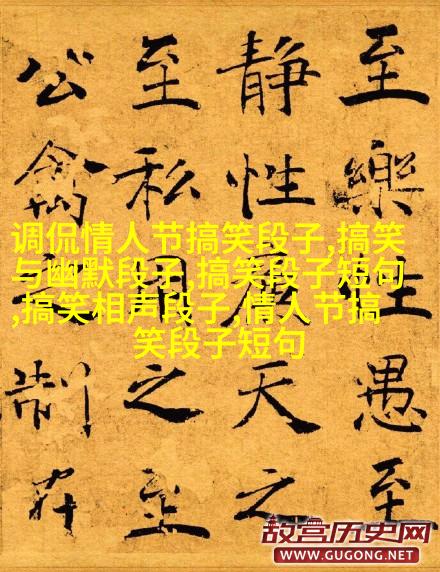 至樂性愚至
静性廉天之
至私用之至
公禽之制在
调侃情人节搞笑段子,搞笑
与幽默段子,搞笑段子短句
,搞笑相声段子,情人节搞
笑段子短句
故宫历史网
WWW.GUGONG.NET